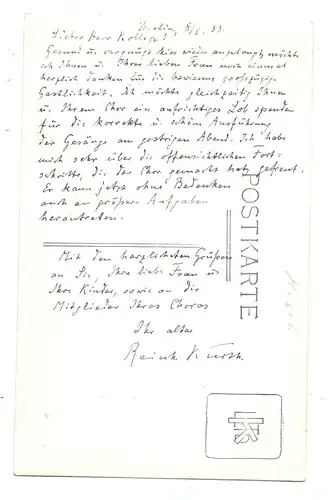 5/6. 33.
Lieber Herr Kollege!
Gesund u. vergnügt hier wieder angelangt, möchte
ich Ihnen u. Ihrer lieben Frau noch einmal
herzlich danken für die bewiesene großzügige
Gastlichkeit. Ich möchte gleichzeitig Ihnen
u. Ihrem Chor ein aufrichtiges Lob spenden
für die korrekte u. schöne Ausführung
der Gesänge am gestrigen Abend. Ich habe
mich sehr über die offensichtlichen Fort-
schritte, die der Chor gemacht hat, gefreut.
Er kann jetzt ohne Bedenken
auch an größere Aufgaben
herantreten.
Mit den herzlichsten Grüßen
an Sie, Ihre liebe Frau u.
Ihre Kinder, sowie an die
Mitglieder Ihres Chores
Ihr alter
POSTKARTE